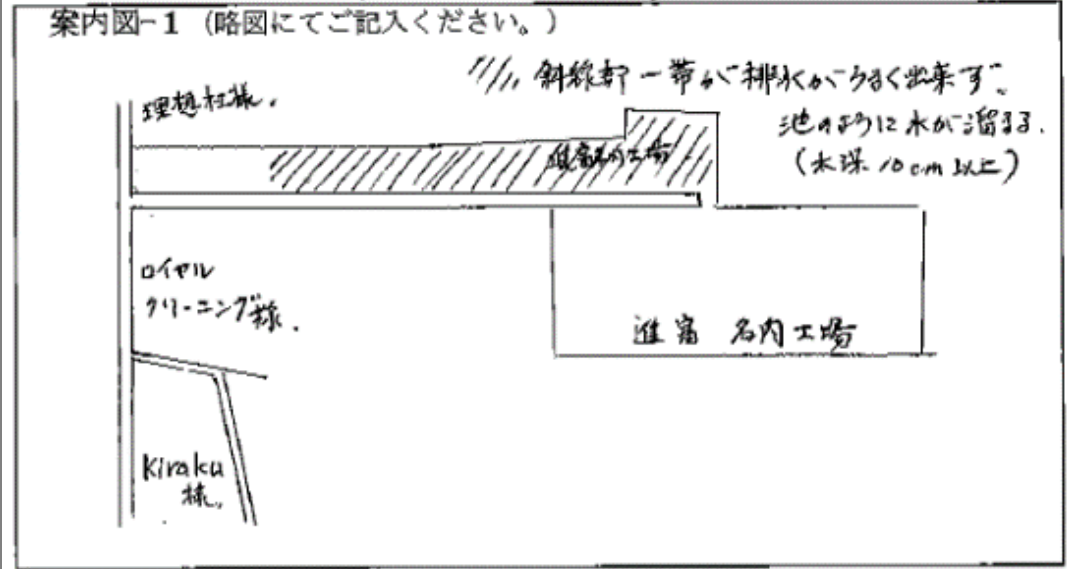 案内図-1 (略図にてご記入ください。)
斜線部一帯が排水がうまく出来ず、
池のように水が溜まる.
(水深10cm以上)
理想社様.
ロイヤル
クリーニング様.
進富 名内工場
Kiraku
様.